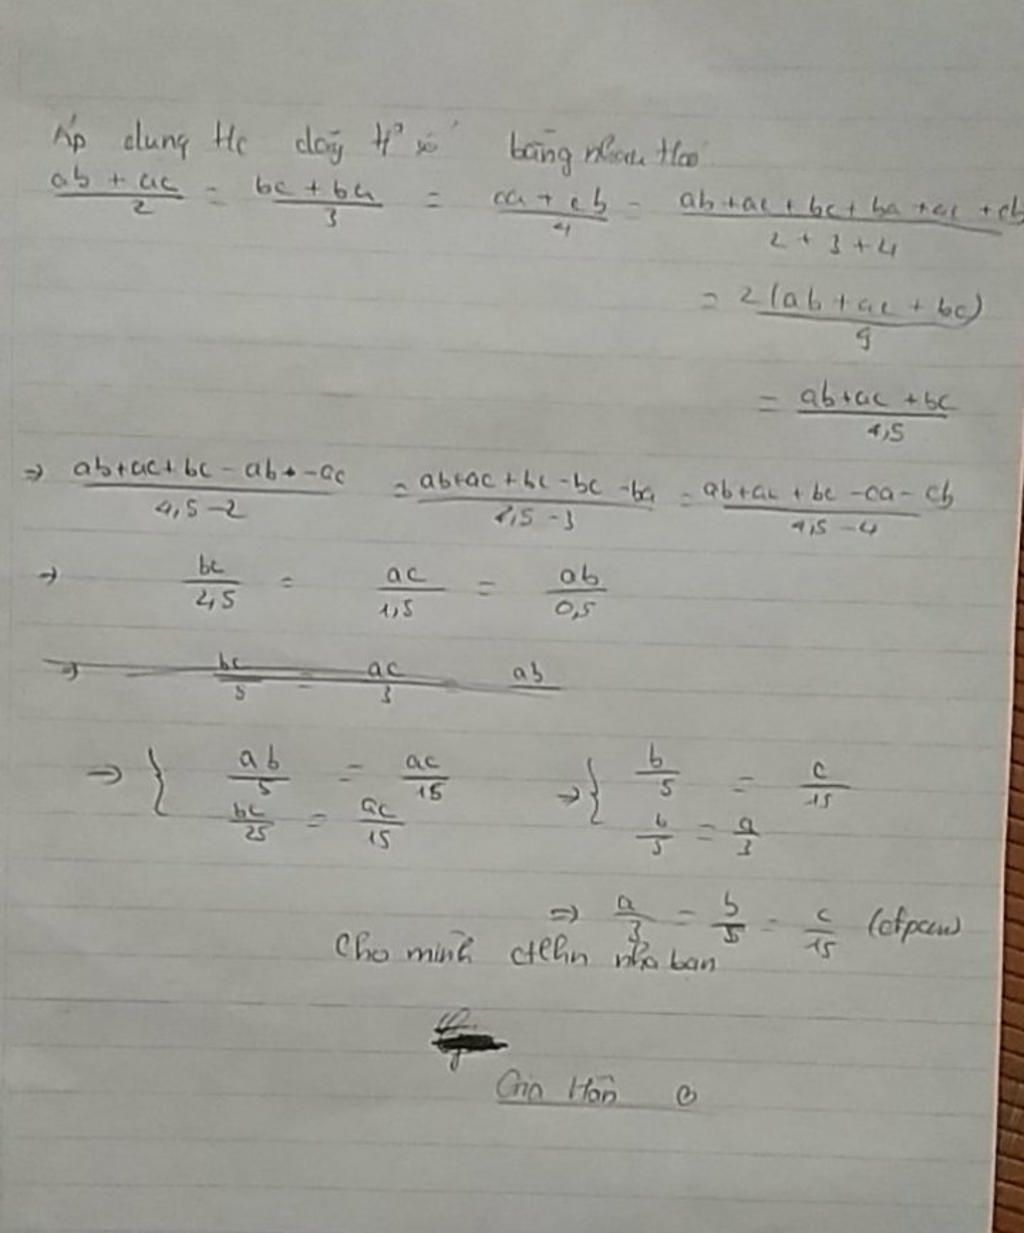 Áp dụng t/c dãy tỉ số bằng nhau ta có
ab + ac/2 = bc + ba/3 = ca + cb/4 = ab + ac + bc + ba + ac + cb/2 + 3 + 4
= 2(ab + ac + bc)/9
= ab + ac + bc/4,5
⇒ ab + ac + bc - ab - ac/4,5 - 2 = ab + ac + bc - bc - ba/4,5 - 3 = ab + ac + bc - ca - cb/4,5 - 4
→ bc/2,5 = ac/1,5 = ab/0,5
⇒ bc/5 = ac/3 ab
⇒ { ab/5 = ac/15 ⇒ { b/5 = c/15
bc/25 = ac/15 b/5 = a/3
⇒ a/3 = b/5 = c/15 (đpcm)
Cho mình ctlhn nha bạn
Gia Hân